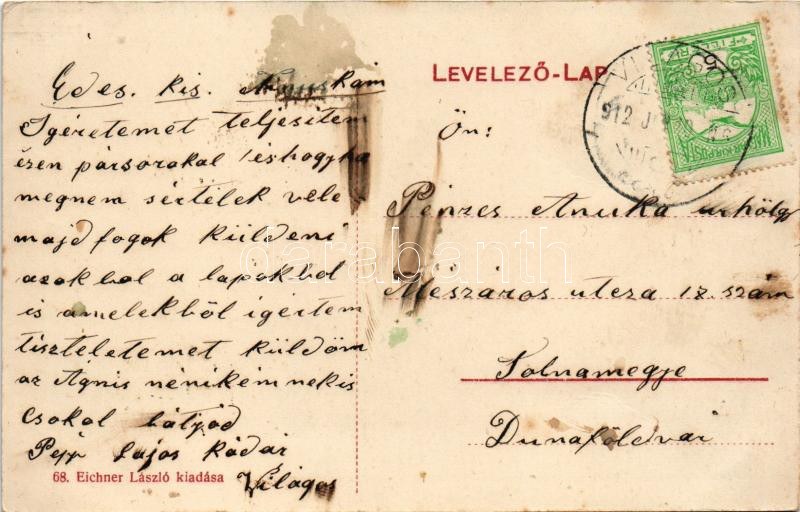 Édes. kis. Anuskám
Igéretemet teljesitem
ezen pársorakal és hogyha
megnem sértélek vele
majd fogok küldeni
azokbol a lapokbol
is amelekből igértem
tiszteletemet küldöm
az Ágnis nénikém nekis
csokol bátyód
Lajos Kádár
Világos
68. Eichner László kiadása
LEVELEZŐ-LAP
Ön:
Pénzes Anuka urhölgy
Mészáros utcza 17. szám
Tolnamegje
Dunaföldvár
VILÁGOS
912
darabanth.com